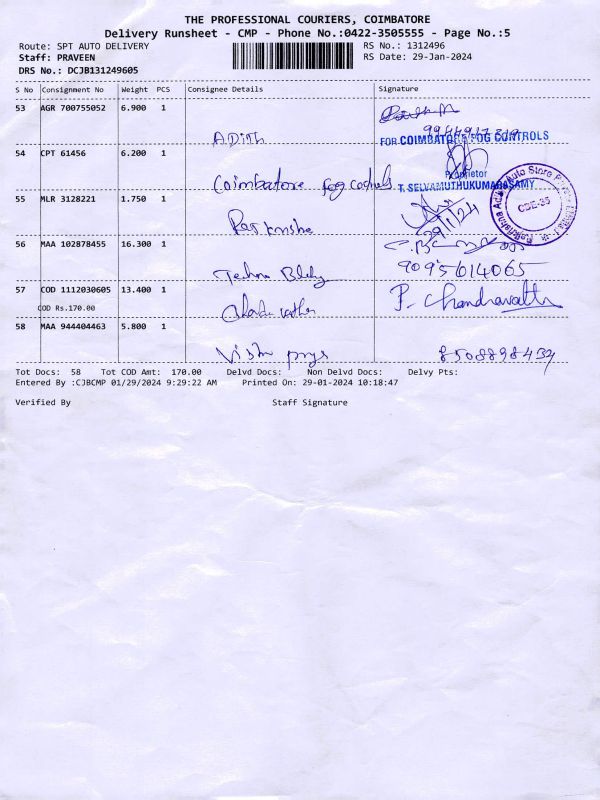 THE PROFESSIONAL COURIERS, COIMBATORE
Delivery Runsheet - CMP - Phone No.:0422-3505555 - Page No.:5
Route: SPT AUTO DELIVERY
RS No.: 1312496
Staff: PRAVEEN
RS Date: 29-Jan-2024
DRS No.: DCJB131249605
S No Consignment No Weight PCS Consignee Details Signature
53 AGR 700755052 6.900 1
ADith
FOR COIMBATORE FOG CONTROLS
54 CPT 61456 6.200 1
Proprietor
Coimbatore fog
T. SELVAMUTHUKUMARASAMY
55 MLR 3128221 1.750 1
29/1/24
CDE-35
56 MAA 102878455 16.300 1
Techno
9095614065
57 COD 1112030605 13.400 1
P. Chandravathi
COD Rs.170.00
58 MAA 944404463 5.800 1
8508898434
Tot Docs: 58 Tot COD Amt: 170.00 Delvd Docs: Non Delvd Docs: Delvy Pts:
Entered By :CJBCMP 01/29/2024 9:29:22 AM Printed On: 29-01-2024 10:18:47
Verified By Staff Signature